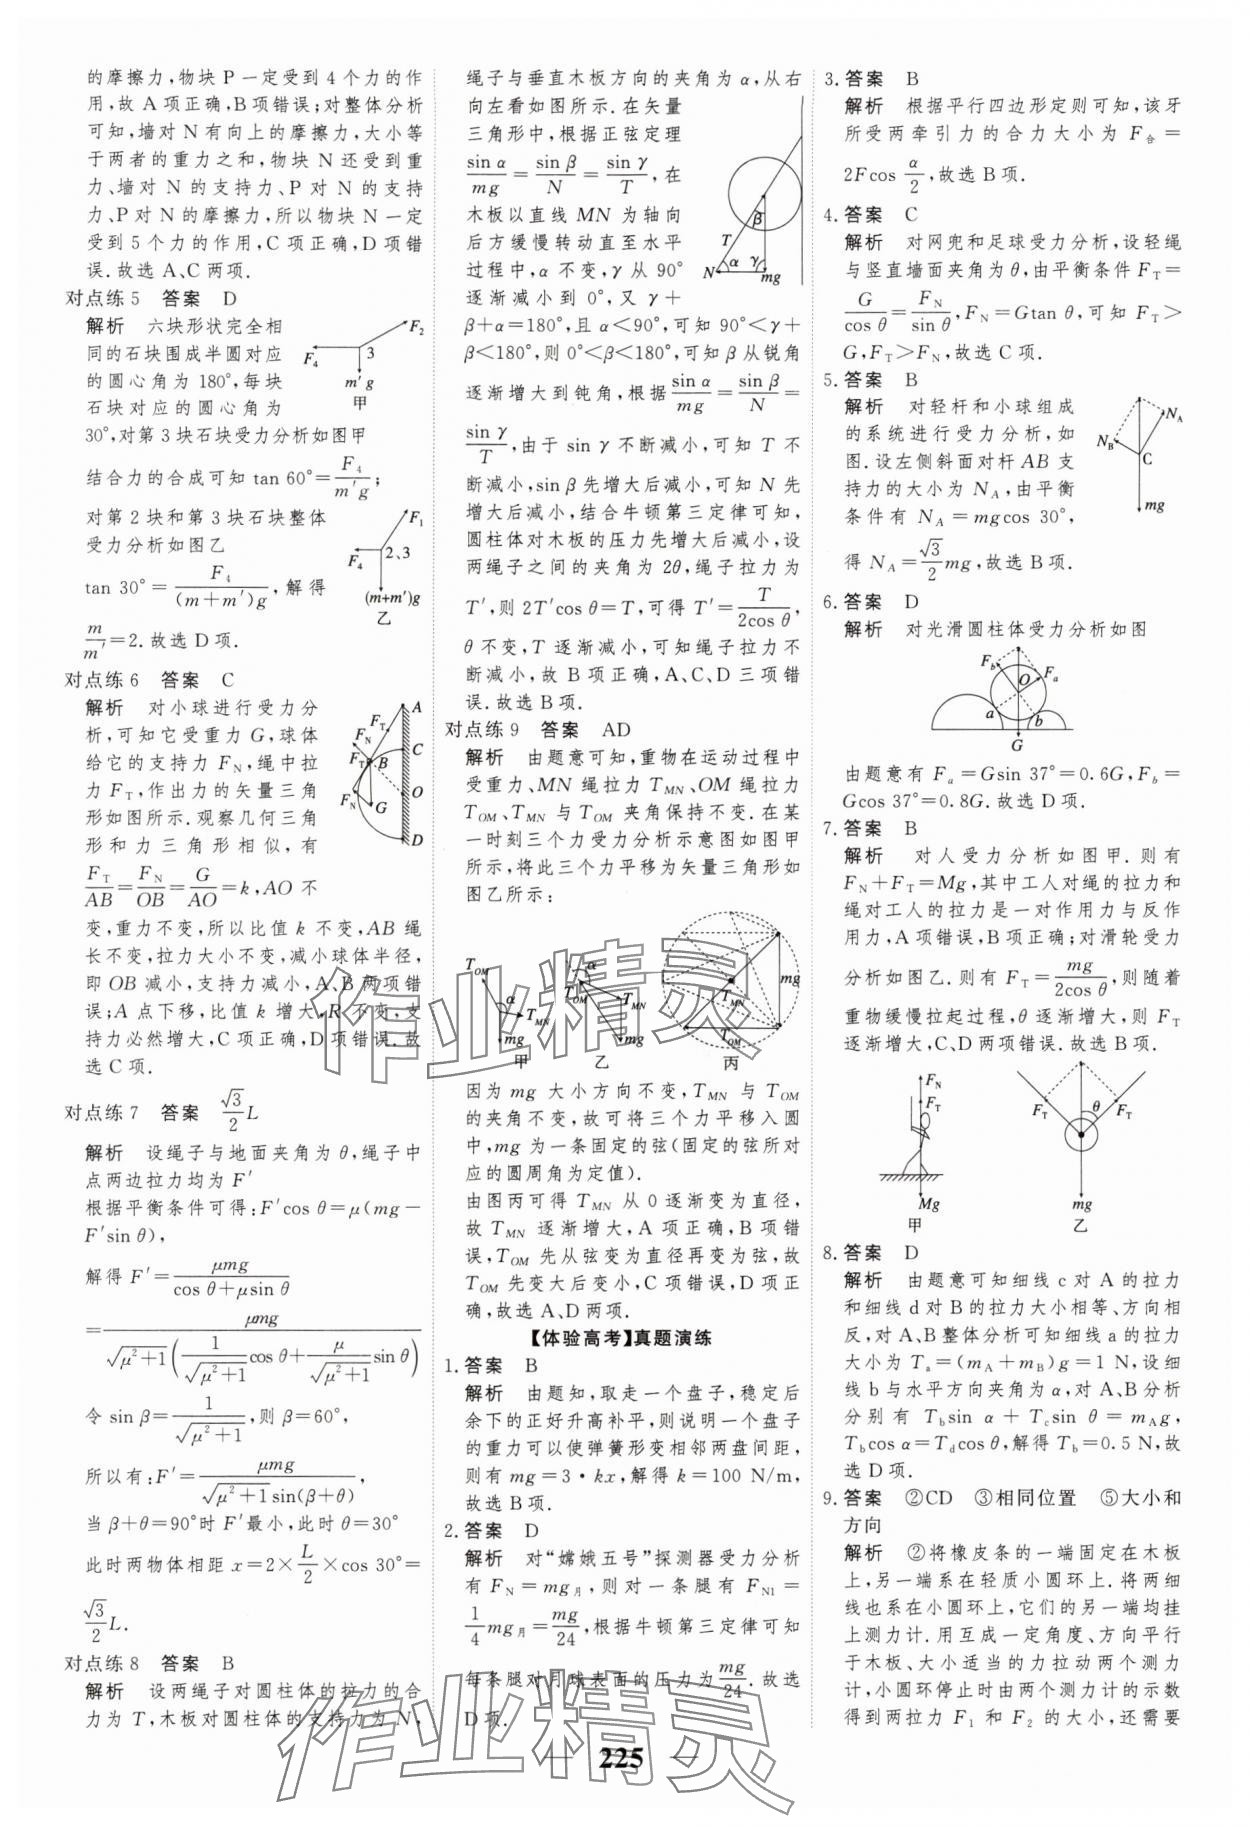 的摩擦力,物块 P 一定受到 4 个力的作
用,故 A 项正确,B 项错误;对整体分析
可知,墙对 N 有向上的摩擦力,大小等
于两者的重力之和,物块 N 还受到重
力、墙对 N 的支持力、P 对 N 的支持
力、P 对 N 的摩擦力,所以物块 N 一定
受到 5 个力的作用,C 项正确,D 项错
误.故选 A、C 两项.
对点练 5 答案 D
解析 六块形状完全相
同的石块围成半圆对应
的圆心角为 180°,每块
石块对应的圆心角为
30°,对第 3 块石块受力分析如图甲
F₂
F₄
3
m′g
甲
结合力的合成可知 tan 60°=F₄/(m′g);
对第 2 块和第 3 块石块整体
受力分析如图乙
F₁
F₄
2、3
(m+m′)g
乙
tan 30°=F₄/((m+m′)g),解得
m/m′=2.故选 D 项.
对点练 6 答案 C
解析 对小球进行受力分
析,可知它受重力 G,球体
给它的支持力 F_N,绳中拉
力 F_T,作出力的矢量三角
形如图所示.观察几何三角
形和力三角形相似,有
A
F_T
F_N
C
F_T
B
O
F_N
G
D
F_T/AB=F_N/OB=G/AO=k,AO 不
变,重力不变,所以比值 k 不变,AB 绳
长不变,拉力大小不变,减小球体半径,
即 OB 减小,支持力减小,A、B 两项错
误;A 点下移,比值 k 增大,R 不变,支
持力必然增大,C 项正确,D 项错误.故
选 C 项.
对点练 7 答案 √3/2 L
解析 设绳子与地面夹角为 θ,绳子中
点两边拉力均为 F′
根据平衡条件可得:F′cos θ=μ(mg−
F′sin θ),
解得 F′=μmg/(cos θ+μsin θ)
=μmg/(√(μ²+1)(1/√(μ²+1) cos θ+μ/√(μ²+1) sin θ))
令 sin β=1/√(μ²+1),则 β=60°,
所以有:F′=μmg/(√(μ²+1)sin(β+θ)),
当 β+θ=90°时 F′最小,此时 θ=30°
此时两物体相距 x=2×L/2×cos 30°=
√3/2 L.
对点练 8 答案 B
解析 设两绳子对圆柱体的拉力的合
力为 T,木板对圆柱体的支持力为 N,
绳子与垂直木板方向的夹角为 α,从右
向左看如图所示.在矢量
三角形中,根据正弦定理
sin α/mg=sin β/N=sin γ/T,在
木板以直线 MN 为轴向
后方缓慢转动直至水平
过程中,α 不变,γ 从 90°
逐渐减小到 0°,又 γ+
β
T
α
γ
N
mg
β+α=180°,且 α<90°,可知 90°<γ+
β<180°,则 0°<β<180°,可知 β 从锐角
逐渐增大到钝角,根据sin α/mg=sin β/N=
sin γ/T,由于 sin γ 不断减小,可知 T 不
断减小,sin β 先增大后减小,可知 N 先
增大后减小,结合牛顿第三定律可知,
圆柱体对木板的压力先增大后减小,设
两绳子之间的夹角为 2θ,绳子拉力为
T′,则 2T′cos θ=T,可得 T′=T/(2cos θ),
θ 不变,T 逐渐减小,可知绳子拉力不
断减小,故 B 项正确,A、C、D 三项错
误.故选 B 项.
对点练 9 答案 AD
解析 由题意可知,重物在运动过程中
受重力、MN 绳拉力 T_MN、OM 绳拉力
T_OM、T_MN 与 T_OM 夹角保持不变.在某
一时刻三个力受力分析示意图如图甲
所示,将此三个力平移为矢量三角形如
图乙所示:
T_OM
α
T_MN
mg
甲
α
T_OM
T_MN
mg
乙
mg
T_MN
T_OM
丙
因为 mg 大小方向不变,T_MN 与 T_OM
的夹角不变,故可将三个力平移入圆
中,mg 为一条固定的弦(固定的弦所对
应的圆周角为定值).
由图丙可得 T_MN 从 0 逐渐变为直径,
故 T_MN 逐渐增大,A 项正确,B 项错
误,T_OM 先从弦变为直径再变为弦,故
T_OM 先变大后变小,C 项错误,D 项正
确,故选 A、D 两项.
【体验高考】真题演练
1. 答案 B
解析 由题知,取走一个盘子,稳定后
余下的正好升高补平,则说明一个盘子
的重力可以使弹簧形变相邻两盘间距,
则有 mg=3·kx,解得 k=100 N/m,
故选 B 项.
2. 答案 D
解析 对“嫦娥五号”探测器受力分析
有 F_N=mg月,则对一条腿有 F_N1=
1/4 mg月=mg/24,根据牛顿第三定律可知
每条腿对月球表面的压力为mg/24.故选
D 项.
3. 答案 B
解析 根据平行四边形定则可知,该牙
所受两牵引力的合力大小为 F合=
2Fcos α/2,故选 B 项.
4. 答案 C
解析 对网兜和足球受力分析,设轻绳
与竖直墙面夹角为 θ,由平衡条件 F_T=
G/cos θ=F_N/sin θ,F_N=Gtan θ,可知 F_T>
G,F_T>F_N,故选 C 项.
5. 答案 B
解析 对轻杆和小球组成
的系统进行受力分析,如
图.设左侧斜面对杆 AB 支
持力的大小为 N_A,由平衡
条件有 N_A=mgcos 30°,
N_A
N_B
C
mg
得 N_A=√3/2 mg,故选 B 项.
6. 答案 D
解析 对光滑圆柱体受力分析如图
F_b
F_a
O
a
b
G
由题意有 F_a=Gsin 37°=0.6G,F_b=
Gcos 37°=0.8G.故选 D 项.
7. 答案 B
解析 对人受力分析如图甲.则有
F_N+F_T=Mg,其中工人对绳的拉力和
绳对工人的拉力是一对作用力与反作
用力,A 项错误,B 项正确;对滑轮受力
分析如图乙.则有 F_T=mg/(2cos θ),则随着
重物缓慢拉起过程,θ 逐渐增大,则 F_T
逐渐增大,C、D 两项错误.故选 B 项.
F_N
F_T
Mg
甲
F_T
θ
F_T
mg
乙
8. 答案 D
解析 由题意可知细线 c 对 A 的拉力
和细线 d 对 B 的拉力大小相等、方向相
反,对 A、B 整体分析可知细线 a 的拉力
大小为 T_a=(m_A+m_B)g=1 N,设细
线 b 与水平方向夹角为 α,对 A、B 分析
分别有 T_b sin α+T_c sin θ=m_A g,
T_b cos α=T_d cos θ,解得 T_b=0.5 N,故
选 D 项.
9. 答案 ②CD ③相同位置 ⑤大小和
方向
解析 ②将橡皮条的一端固定在木板
上,另一端系在轻质小圆环上.将两细
线也系在小圆环上,它们的另一端均挂
上测力计.用互成一定角度、方向平行
于木板、大小适当的力拉动两个测力
计,小圆环停止时由两个测力计的示数
得到两拉力 F₁ 和 F₂ 的大小,还需要
— 225 —
作业精灵
作业精灵